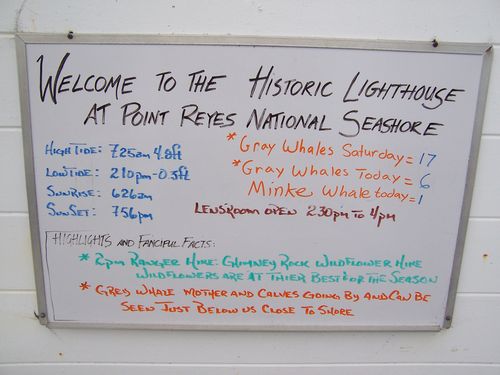 Welcome to the Historic Lighthouse
at Point Reyes National Seashore
High Tide: 725am 4.8ft
Low Tide: 210pm -0.3ft
Sunrise: 626am
Sunset: 756pm
*Gray Whales Saturday = 17
*Gray Whales Today = 6
Minke Whale today = 1
Lensroom open 230pm to 4pm
Highlights and Fanciful Facts:
* 2pm Ranger Hike: Chimney Rock Wildflower Hike
Wildflowers are at thier best for the season
* Grey whale mother and calves going by and can be
seen just below us close to shore